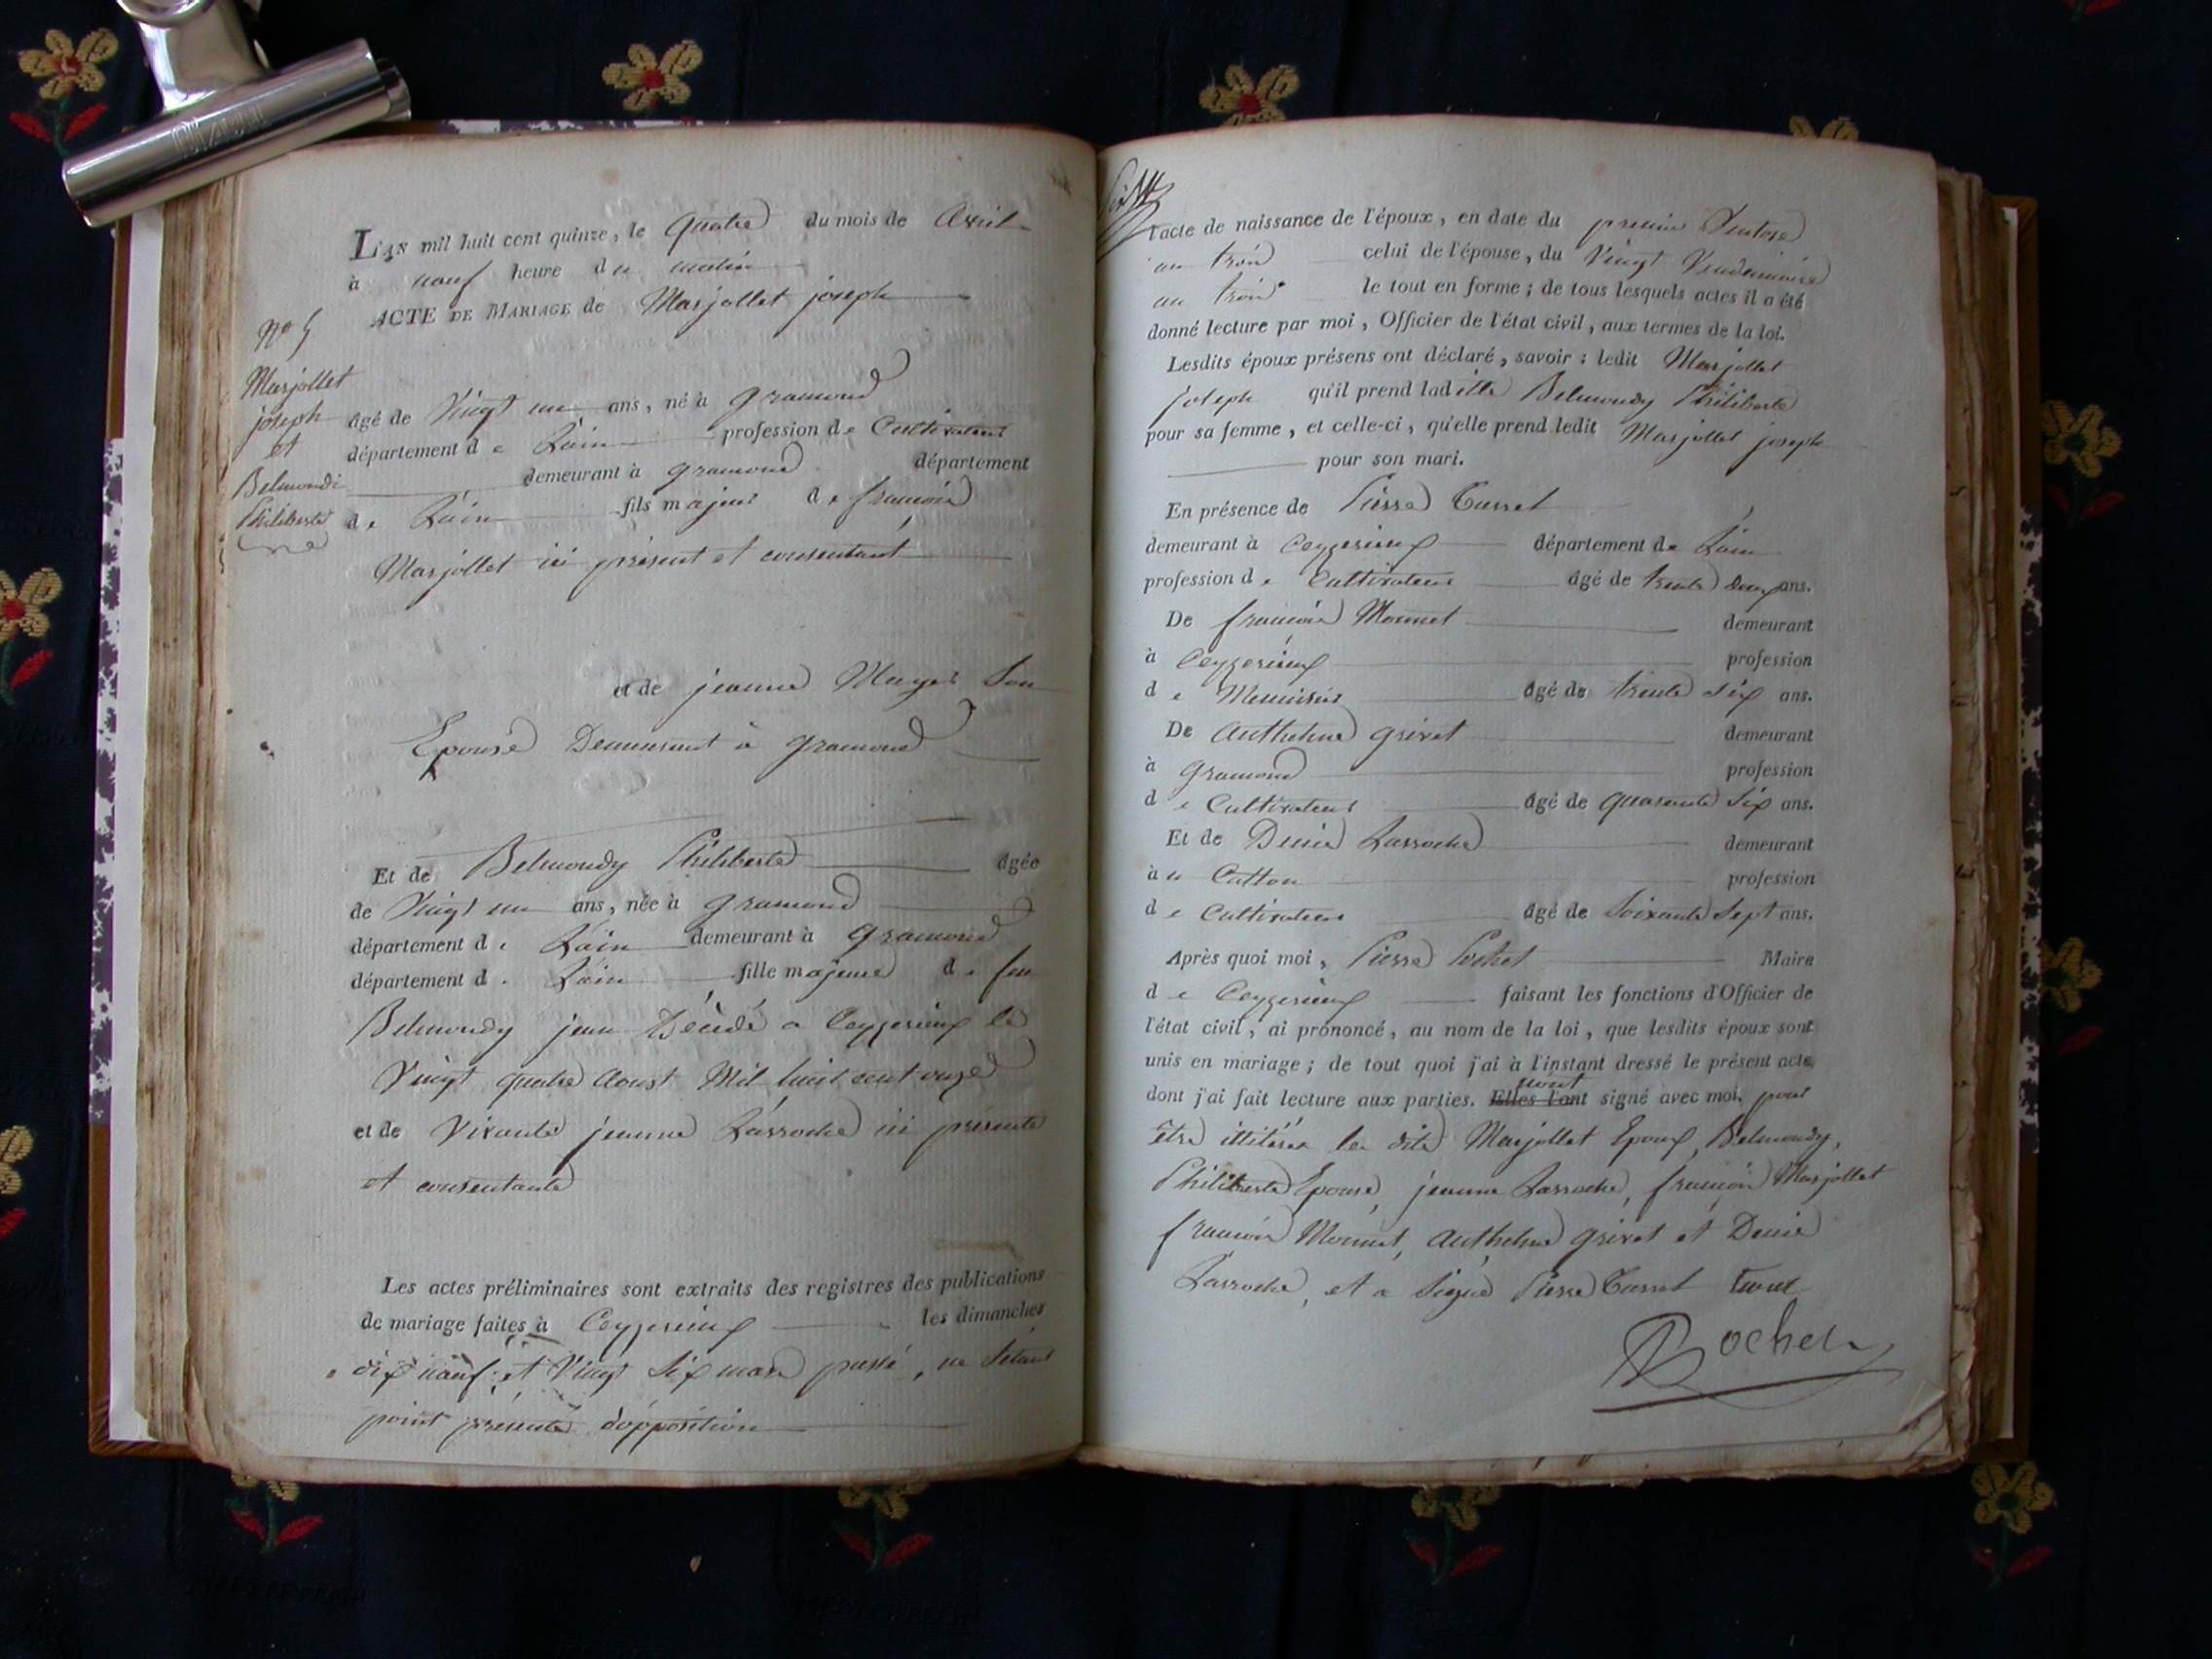 L'AN mil huit cent quinze, le Quatre du mois de Avril
à neuf heure du matin
ACTE DE MARIAGE de Marjollet joseph
No 5
Marjollet
joseph
et
Belmondi
Philiberte
âgé de Vingt un ans, né à gramond
département de Lain profession de Cultivateur
demeurant à gramond département
de Lain fils majeur de francois
Marjollet ici présent et consentant
et de jeanne Mayer Son
Epouse Demeurant à gramond
Et de Belmondy Philiberte âgée
de Vingt un ans, née à gramond
département de Lain demeurant à gramond
département de Lain fille majeure de feu
Belmondy jean Décédé a Ceyzerieux le
Vingt quatre Aoust Mil huit cent onze
et de Vivante jeanne Larroche ici présente
et consentante
Les actes préliminaires sont extraits des registres des publications
de mariage faites à Ceyzerieux les dimanches
dix neuf et Vingt Six mars passé, ne Setant
point présenté dopposition
l'acte de naissance de l'époux, en date du premier Ventose
an trois celui de l'épouse, du Vingt Vendemiaire
an trois le tout en forme ; de tous lesquels actes il a été
donné lecture par moi, Officier de l'état civil, aux termes de la loi.
Lesdits époux présens ont déclaré, savoir : ledit Marjollet
joseph qu'il prend laditte Belmondy Philiberte
pour sa femme, et celle-ci, qu'elle prend ledit Marjollet joseph
pour son mari.
En présence de Pierre Curret
demeurant à Ceyzerieux département de Lain
profession de Cultivateur âgé de trente deux ans.
De francois Monnet demeurant
à Ceyzerieux profession
de Menuisier âgé de trente six ans.
De Anthelme grivet demeurant
à gramond profession
de Cultivateur âgé de quarante Six ans.
Et de Denis Larroche demeurant
à u Catton profession
de Cultivateur âgé de Soixante Sept ans.
Après quoi moi, Pierre Pochet Maire
de Ceyzerieux faisant les fonctions d'Officier de
l'état civil, ai prononcé, au nom de la loi, que lesdits époux sont
unis en mariage ; de tout quoi j'ai à l'instant dressé le présent acte,
dont j'ai fait lecture aux parties. Elles l'ont nont signé avec moi, pour
être illitérés les dits Marjollet Epoux, Belmondy,
Philiberte Epouse, jeanne Larroche, francois Marjollet
francois Monnet, Anthelme grivet et Denis
Larroche, et a Signé Pierre Curret
Pochet